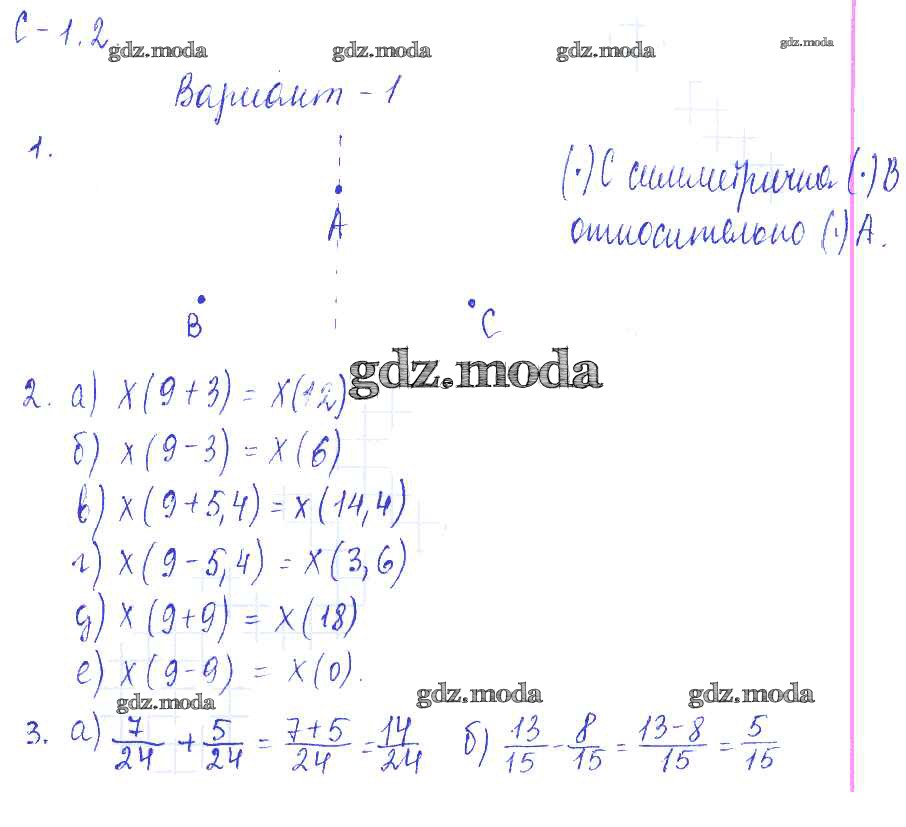 С-1.2
gdz.moda gdz.moda gdz.moda gdz.moda
Вариант - 1
1.
(·)С симметрична (·)В
A
относительно (·)А.
B C
gdz.moda
2. а) X(9+3) = X(12)
б) X(9-3) = X(6)
в) X(9+5,4) = X(14,4)
г) X(9-5,4) = X(3,6)
д) X(9+9) = X(18)
е) X(9-9) = X(0).
gdz.moda gdz.moda gdz.moda
3. а) 7/24 + 5/24 = 7+5/24 = 14/24 б) 13/15 - 8/15 = 13-8/15 = 5/15